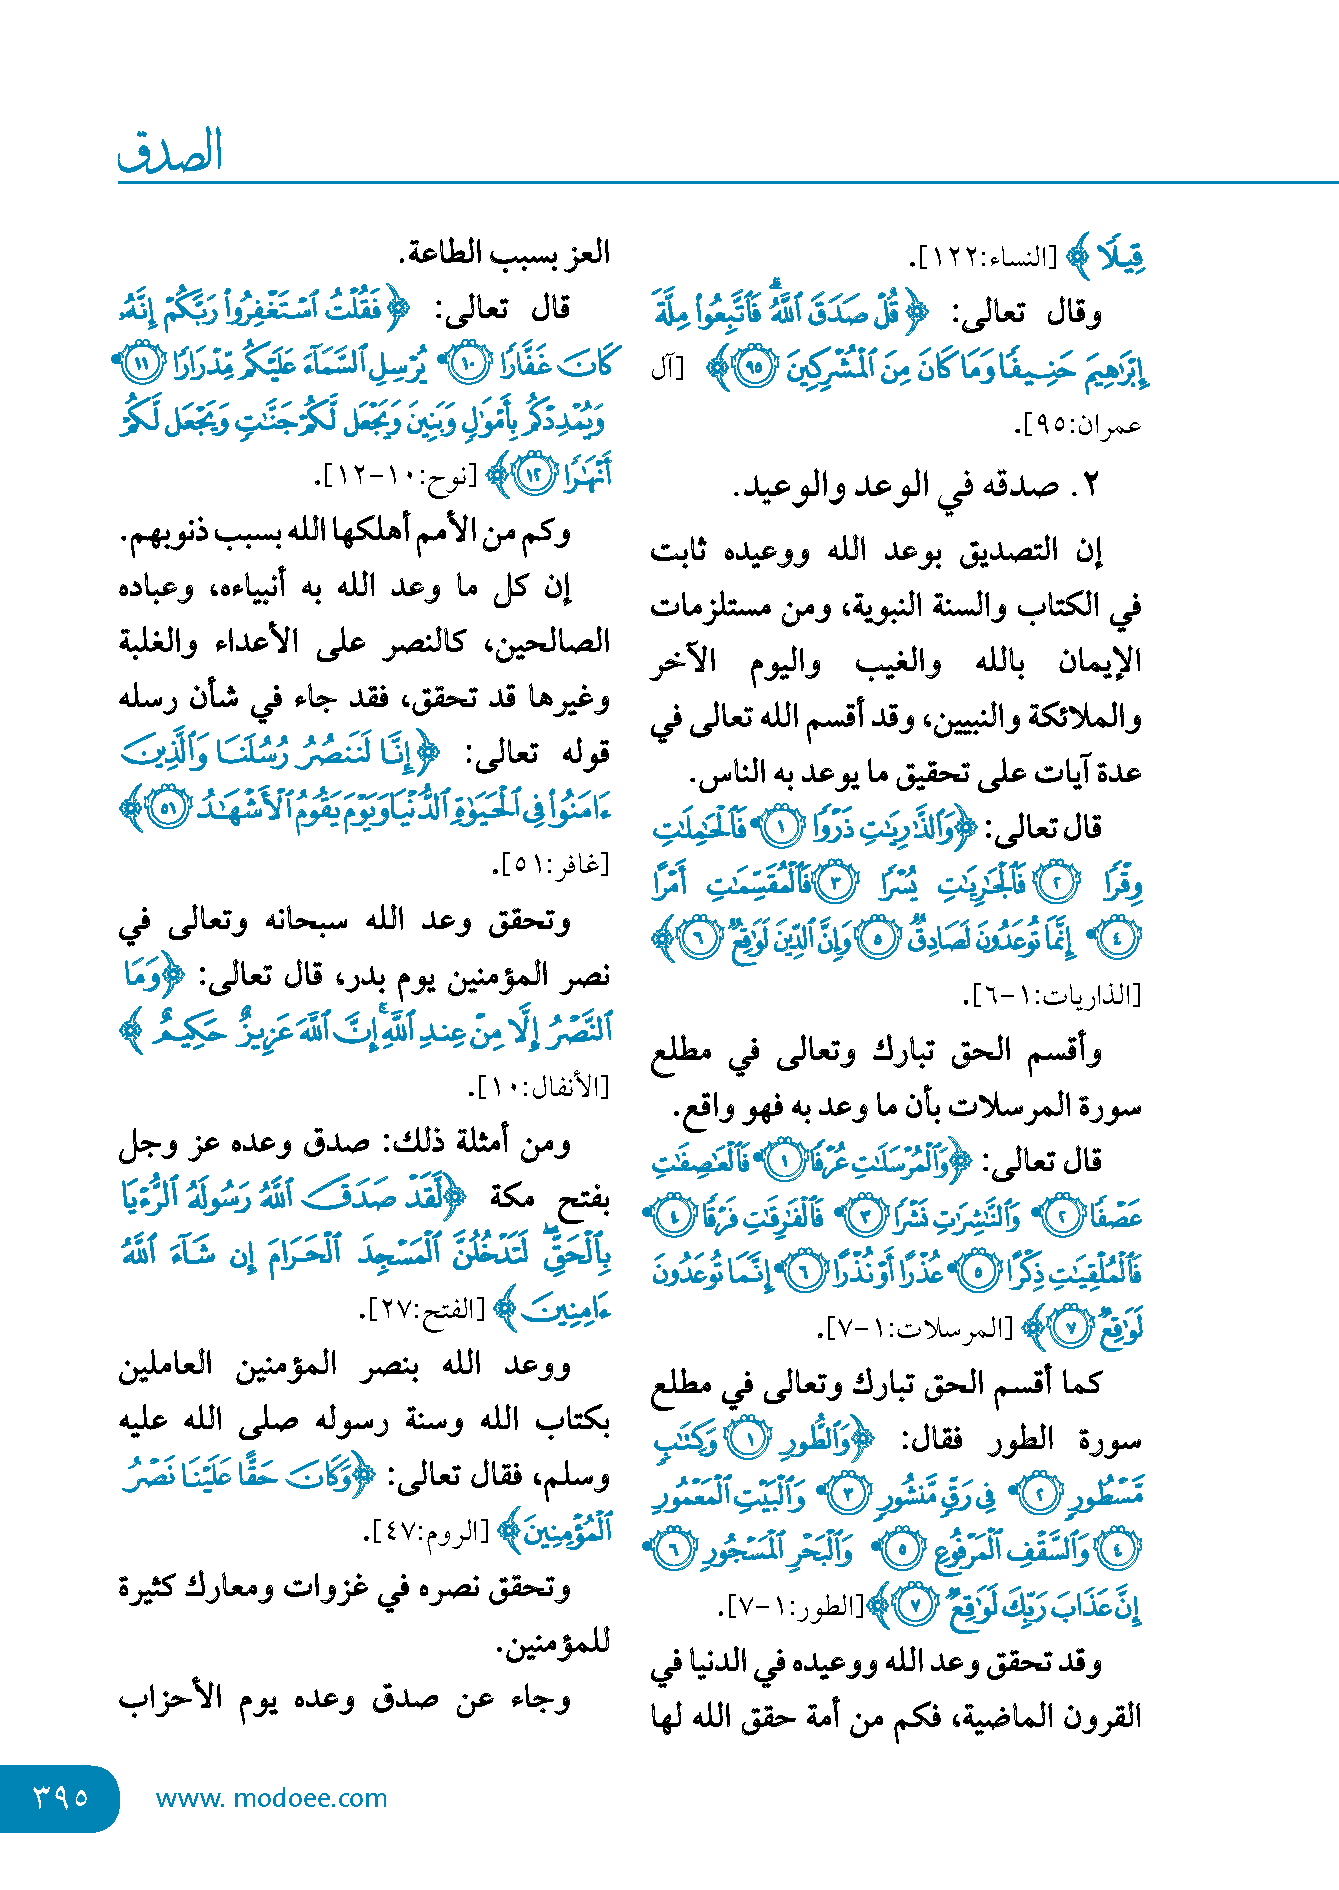 الصدق
قِيلًا ﴾ [النساء:١٢٢].
وقال تعالى: ﴿قُلْ صَدَقَ ٱللَّهُ ۗ فَٱتَّبِعُوا۟ مِلَّةَ
إِبْرَٰهِيمَ حَنِيفًا وَمَا كَانَ مِنَ ٱلْمُشْرِكِينَ ۝٩٥﴾ [آل
عمران:٩٥].
٢. صدقه في الوعد والوعيد.
إن التصديق بوعد الله ووعيده ثابت
في الكتاب والسنة النبوية، ومن مستلزمات
الإيمان بالله والغيب واليوم الآخر
والملائكة والنبيين، وقد أقسم الله تعالى في
عدة آيات على تحقيق ما يوعد به الناس.
قال تعالى: ﴿وَٱلذَّٰرِيَٰتِ ذَرْوًا ۝١ فَٱلْحَٰمِلَٰتِ
وِقْرًا ۝٢ فَٱلْجَٰرِيَٰتِ يُسْرًا ۝٣ فَٱلْمُقَسِّمَٰتِ أَمْرًا
۝٤ إِنَّمَا تُوعَدُونَ لَصَادِقٌ ۝٥ وَإِنَّ ٱلدِّينَ لَوَٰقِعٌ ۝٦﴾
[الذاريات:١-٦].
وأقسم الحق تبارك وتعالى في مطلع
سورة المرسلات بأن ما وعد به فهو واقع.
قال تعالى: ﴿وَٱلْمُرْسَلَٰتِ عُرْفًا ۝١ فَٱلْعَٰصِفَٰتِ
عَصْفًا ۝٢ وَٱلنَّٰشِرَٰتِ نَشْرًا ۝٣ فَٱلْفَٰرِقَٰتِ فَرْقًا ۝٤
فَٱلْمُلْقِيَٰتِ ذِكْرًا ۝٥ عُذْرًا أَوْ نُذْرًا ۝٦ إِنَّمَا تُوعَدُونَ
لَوَٰقِعٌ ۝٧ ﴾ [المرسلات:١-٧].
كما أقسم الحق تبارك وتعالى في مطلع
سورة الطور فقال: ﴿وَٱلطُّورِ ۝١ وَكِتَٰبٍ
مَّسْطُورٍ ۝٢ فِى رَقٍّ مَّنشُورٍ ۝٣ وَٱلْبَيْتِ ٱلْمَعْمُورِ
۝٤ وَٱلسَّقْفِ ٱلْمَرْفُوعِ ۝٥ وَٱلْبَحْرِ ٱلْمَسْجُورِ ۝٦
إِنَّ عَذَابَ رَبِّكَ لَوَٰقِعٌ ۝٧﴾[الطور:١-٧].
وقد تحقق وعد الله ووعيده في الدنيا في
القرون الماضية، فكم من أمة حقق الله لها
العز بسبب الطاعة.
قال تعالى: ﴿فَقُلْتُ ٱسْتَغْفِرُوا۟ رَبَّكُمْ إِنَّهُۥ
كَانَ غَفَّارًا ۝١٠ يُرْسِلِ ٱلسَّمَآءَ عَلَيْكُم مِّدْرَارًا ۝١١
وَيُمْدِدْكُم بِأَمْوَٰلٍ وَبَنِينَ وَيَجْعَل لَّكُمْ جَنَّٰتٍ وَيَجْعَل لَّكُمْ
أَنْهَٰرًا ۝١٢﴾ [نوح:١٠-١٢].
وكم من الأمم أهلكها الله بسبب ذنوبهم.
إن كل ما وعد الله به أنبياءه، وعباده
الصالحين، كالنصر على الأعداء والغلبة
وغيرها قد تحقق، فقد جاء في شأن رسله
قوله تعالى: ﴿إِنَّا لَنَنصُرُ رُسُلَنَا وَٱلَّذِينَ
ءَامَنُوا۟ فِى ٱلْحَيَوٰةِ ٱلدُّنْيَا وَيَوْمَ يَقُومُ ٱلْأَشْهَٰدُ ۝٥١﴾
[غافر:٥١].
وتحقق وعد الله سبحانه وتعالى في
نصر المؤمنين يوم بدر، قال تعالى: ﴿وَمَا
ٱلنَّصْرُ إِلَّا مِنْ عِندِ ٱللَّهِ ۚ إِنَّ ٱللَّهَ عَزِيزٌ حَكِيمٌ ﴾
[الأنفال:١٠].
ومن أمثلة ذلك: صدق وعده عز وجل
بفتح مكة ﴿لَّقَدْ صَدَقَ ٱللَّهُ رَسُولَهُ ٱلرُّءْيَا
بِٱلْحَقِّ ۖ لَتَدْخُلُنَّ ٱلْمَسْجِدَ ٱلْحَرَامَ إِن شَآءَ ٱللَّهُ
ءَامِنِينَ ﴾ [الفتح:٢٧].
ووعد الله بنصر المؤمنين العاملين
بكتاب الله وسنة رسوله صلى الله عليه
وسلم، فقال تعالى: ﴿وَكَانَ حَقًّا عَلَيْنَا نَصْرُ
ٱلْمُؤْمِنِينَ﴾ [الروم:٤٧].
وتحقق نصره في غزوات ومعارك كثيرة
للمؤمنين.
وجاء عن صدق وعده يوم الأحزاب
www. modoee.com
٣٩٥